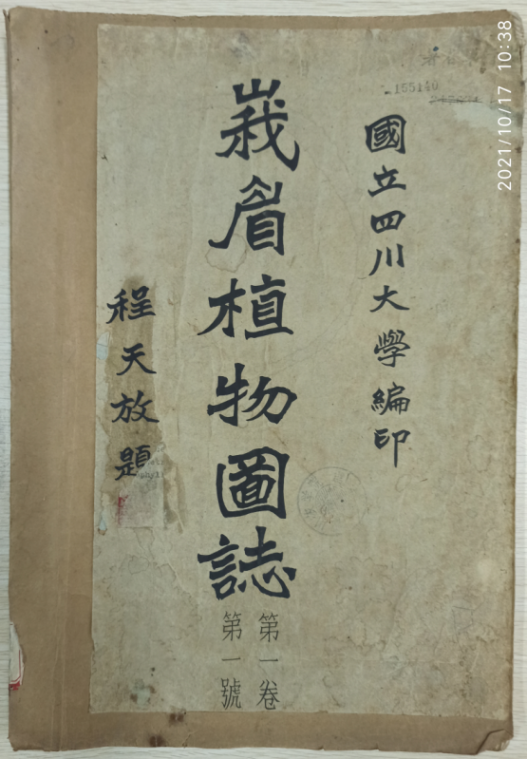 國立四川大學編印
峩眉植物圖誌
第一卷
第一號
程天放題
155140
2021/10/17 10:38